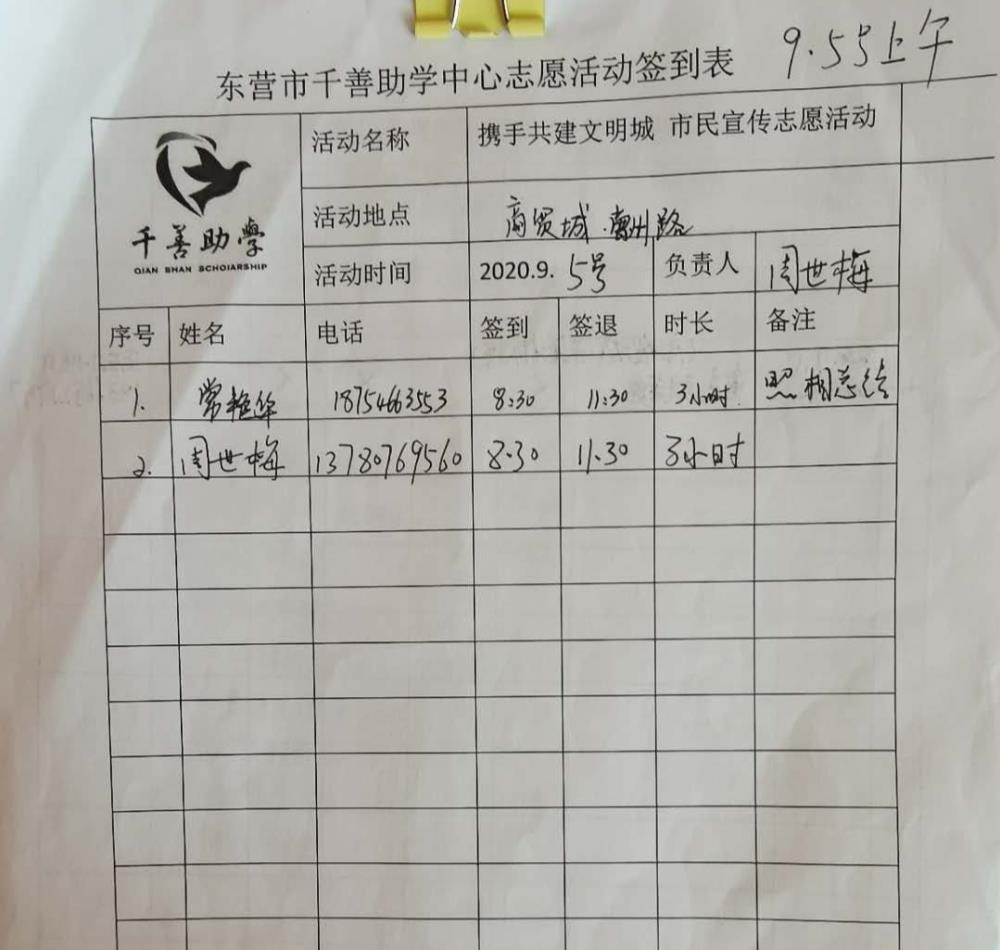 9.5号上午
东营市千善助学中心志愿活动签到表
千善助學
QIAN SHAN SCHOLARSHIP
活动名称 携手共建文明城 市民宣传志愿活动
活动地点 商贸城. 路
活动时间 2020.9. 5号 负责人 周世梅
序号 姓名 电话 签到 签退 时长 备注
1. 常艳华 18754663553 8:30 11:30 3小时. 照相总结
2. 周世梅 13780769560 8.30 11.30 3小时